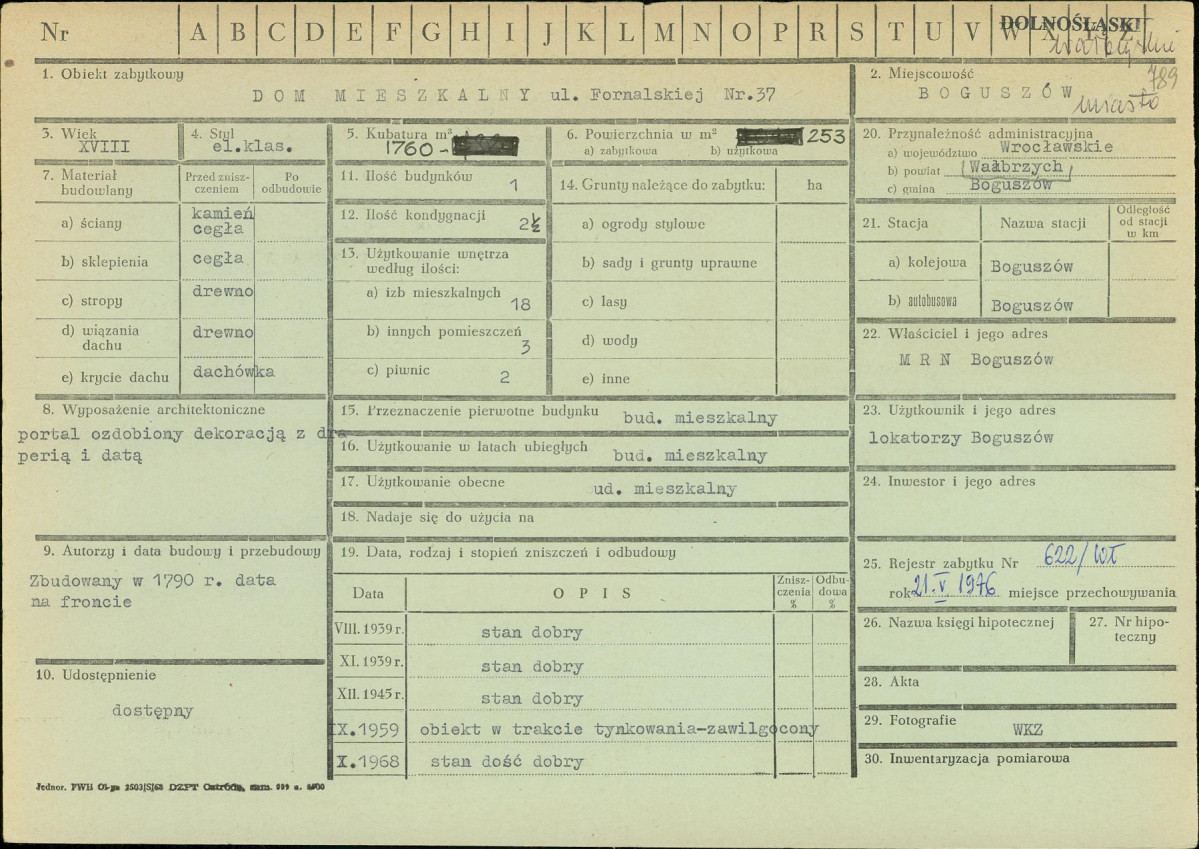 Nr A B C D E F G H I J K L M N O P R S T U V W X Y Z
DOLNOŚLĄSKI
1. Obiekt zabytkowy
DOM MIESZKALNY ul. Fornalskiej Nr.37
2. Miejscowość
789
BOGUSZÓW
miasto
3. Wiek
XVIII
4. Styl
el.klas.
5. Kubatura m³
1760-
6. Powierzchnia w m² 253
a) zabytkowa b) użytkowa
7. Materiał budowlany
Przed zniszczeniem
Po odbudowie
a) ściany kamień cegła
b) sklepienia cegła
c) stropy drewno
d) wiązania dachu drewno
e) krycie dachu dachówka
8. Wyposażenie architektoniczne
portal ozdobiony dekoracją z dra
perią i datą
9. Autorzy i data budowy i przebudowy
Zbudowany w 1790 r. data
na froncie
10. Udostępnienie
dostępny
11. Ilość budynków 1
12. Ilość kondygnacji 2½
13. Użytkowanie wnętrza
według ilości:
a) izb mieszkalnych 18
b) innych pomieszczeń 3
c) piwnic 2
14. Grunty należące do zabytku: ha
a) ogrody stylowe
b) sady i grunty uprawne
c) lasy
d) wody
e) inne
15. Przeznaczenie pierwotne budynku bud. mieszkalny
16. Użytkowanie w latach ubiegłych bud. mieszkalny
17. Użytkowanie obecne ud. mieszkalny
18. Nadaje się do użycia na -
19. Data, rodzaj i stopień zniszczeń i odbudowy
Data OPIS Zniszczenia % Odbudowa %
VIII. 1939 r. stan dobry
XI. 1939 r. stan dobry
XII. 1945 r. stan dobry
IX.1959 obiekt w trakcie tynkowania-zawilgocony
X.1968 stan dość dobry
20. Przynależność administracyjna
a) województwo Wrocławskie
b) powiat Wałbrzych
c) gmina Boguszów
21. Stacja Nazwa stacji Odległość od stacji w km
a) kolejowa Boguszów
b) autobusowa Boguszów
22. Właściciel i jego adres
MRN Boguszów
23. Użytkownik i jego adres
lokatorzy Boguszów
24. Inwestor i jego adres
25. Rejestr zabytku Nr 622/Wł
rok 21.V.1976 miejsce przechowywania
26. Nazwa księgi hipotecznej
27. Nr hipoteczny
28. Akta
29. Fotografie
WKZ
30. Inwentaryzacja pomiarowa